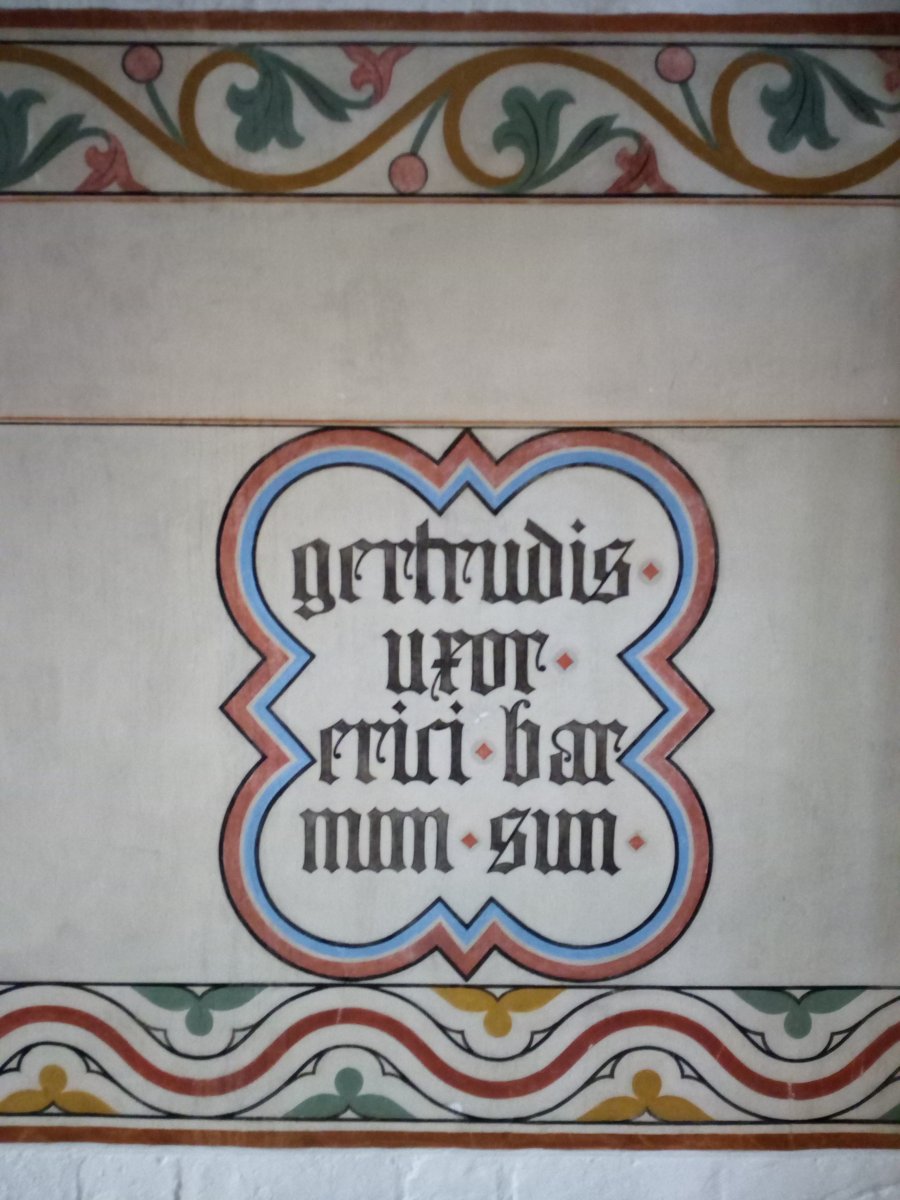 gertrudis ·
uxor ·
erici · bar
num · sun ·